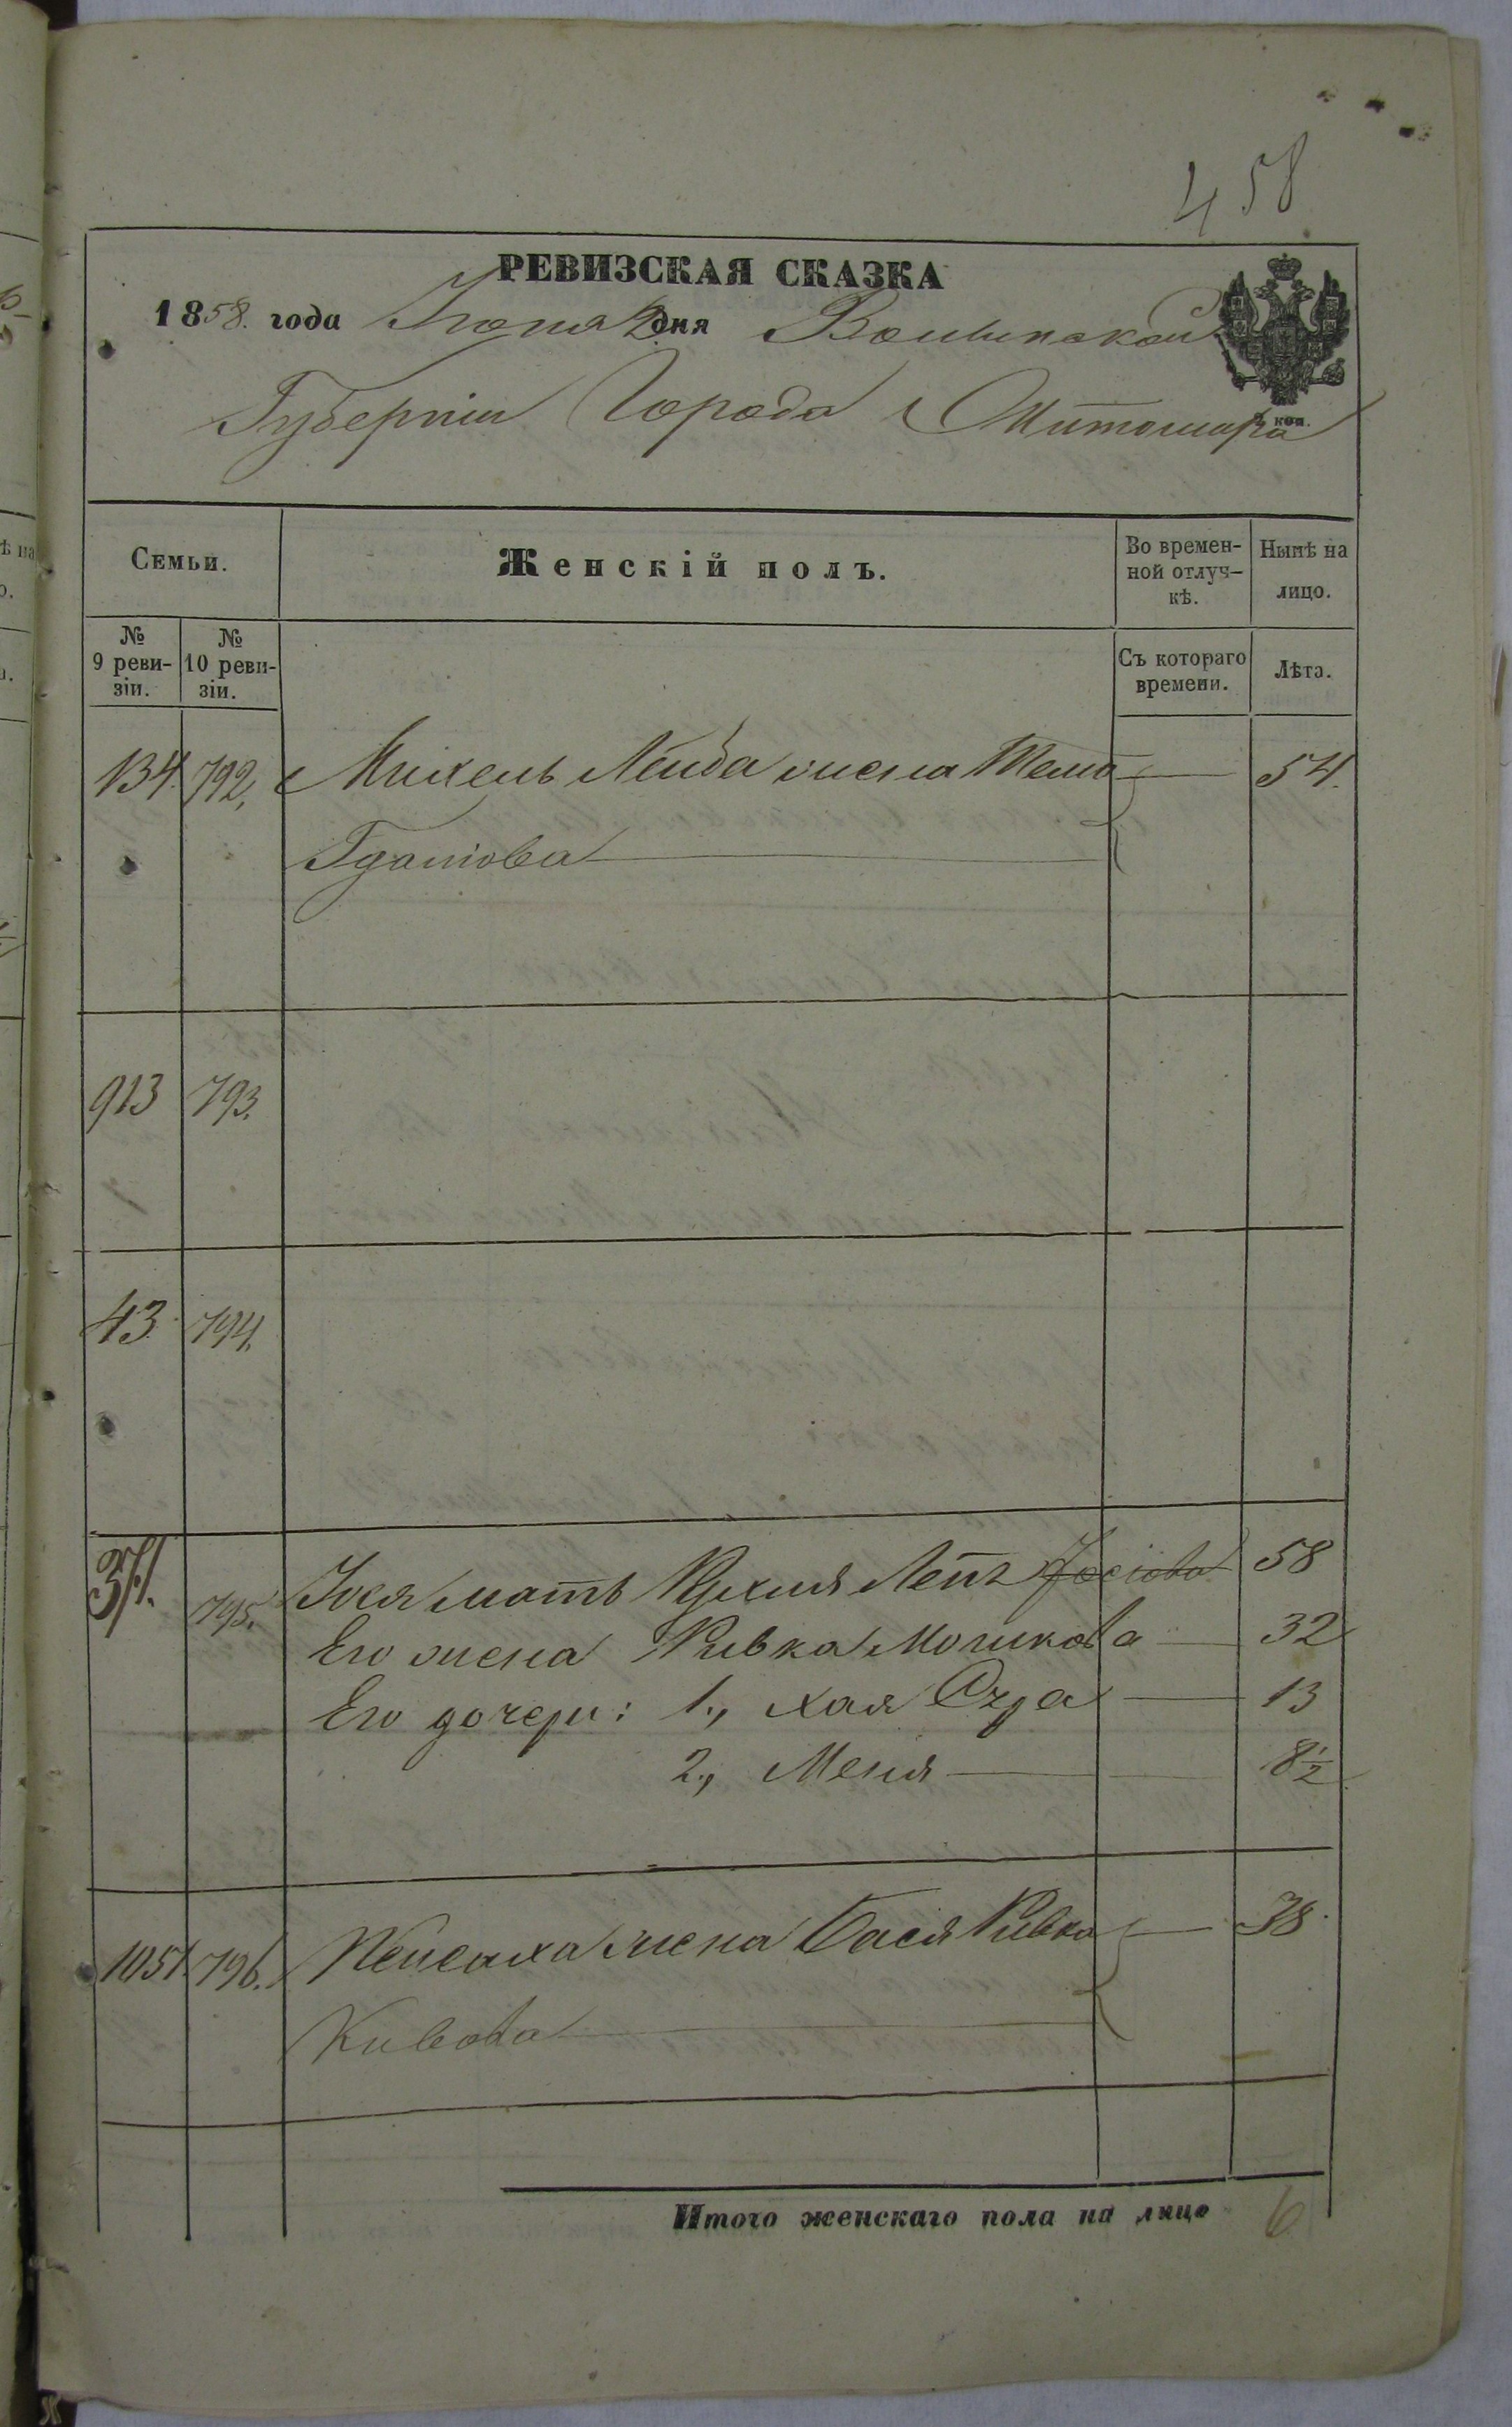 458
РЕВИЗСКАЯ СКАЗКА
1858. года Іюня 2 дня Волынской
Губерніи Города Житомира
коп.
Семьи.
Женскій полъ.
Во времен-
ной отлуч-
кѣ.
Нынѣ на
лицо.
№
9 реви-
зіи.
№
10 реви-
зіи.
Съ котораго
времени.
Лѣта.
134. 792. Михель Лейба жена Тема 54.
913 793.
43. 794.
371. 795. мать Рухля 58
Его жена Ривка Мошкова 32
Его дочери: 1., Хая 13
2., Меня 8½
1051. 796. Пейсаха жена Бася Ривка 38.
Кивова
Итого женскаго пола на лицо 6